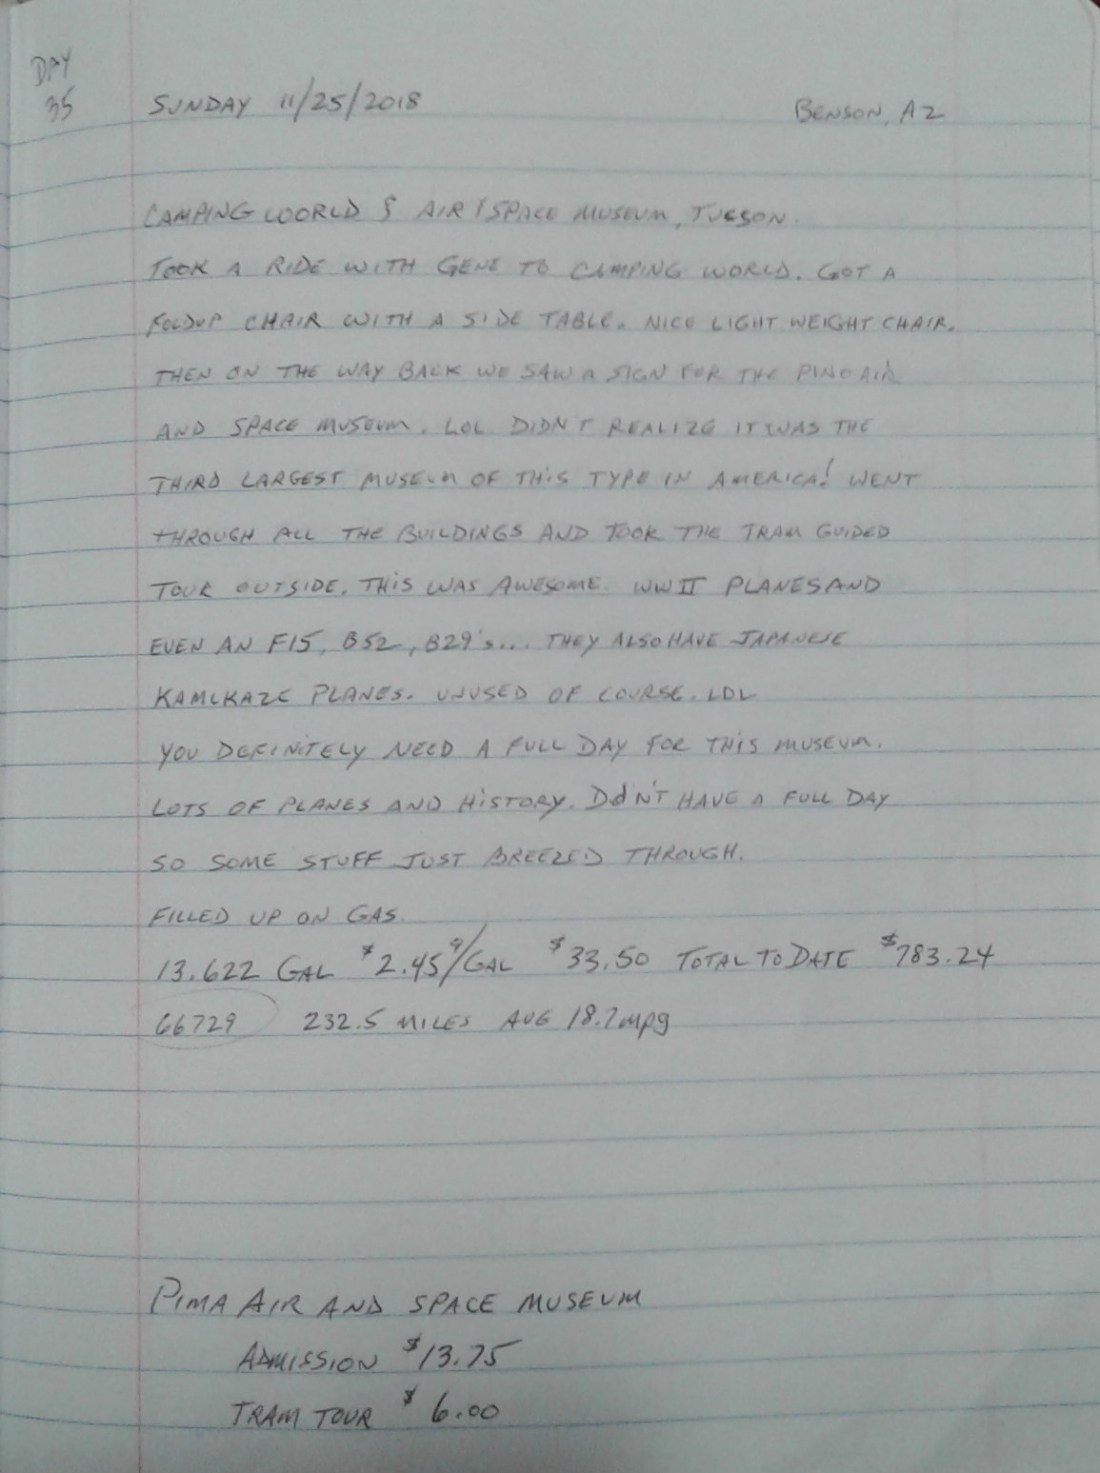 DAY
35
SUNDAY 11/25/2018 BENSON, AZ
CAMPING WORLD & AIR/SPACE MUSEUM, TUCSON.
TOOK A RIDE WITH GENE TO CAMPING WORLD. GOT A
FOLDUP CHAIR WITH A SIDE TABLE. NICE LIGHT WEIGHT CHAIR.
THEN ON THE WAY BACK WE SAW A SIGN FOR THE PINO AIR
AND SPACE MUSEUM. LOL DIDN'T REALIZE IT WAS THE
THIRD LARGEST MUSEUM OF THIS TYPE IN AMERICA! WENT
THROUGH ALL THE BUILDINGS AND TOOK THE TRAM GUIDED
TOUR OUTSIDE. THIS WAS AWESOME. WWII PLANES AND
EVEN AN F15, B52, B29's.... THEY ALSO HAVE JAPANESE
KAMIKAZE PLANES. UNUSED OF COURSE. LOL
YOU DEFINITELY NEED A FULL DAY FOR THIS MUSEUM.
LOTS OF PLANES AND HISTORY. DIDN'T HAVE A FULL DAY
SO SOME STUFF JUST BREEZED THROUGH.
FILLED UP ON GAS.
13.622 GAL $2.45 9/GAL $33.50 TOTAL TO DATE $783.24
66729 232.5 MILES AVG 18.7 mpg
PIMA AIR AND SPACE MUSEUM
ADMISSION $13.75
TRAM TOUR $6.00